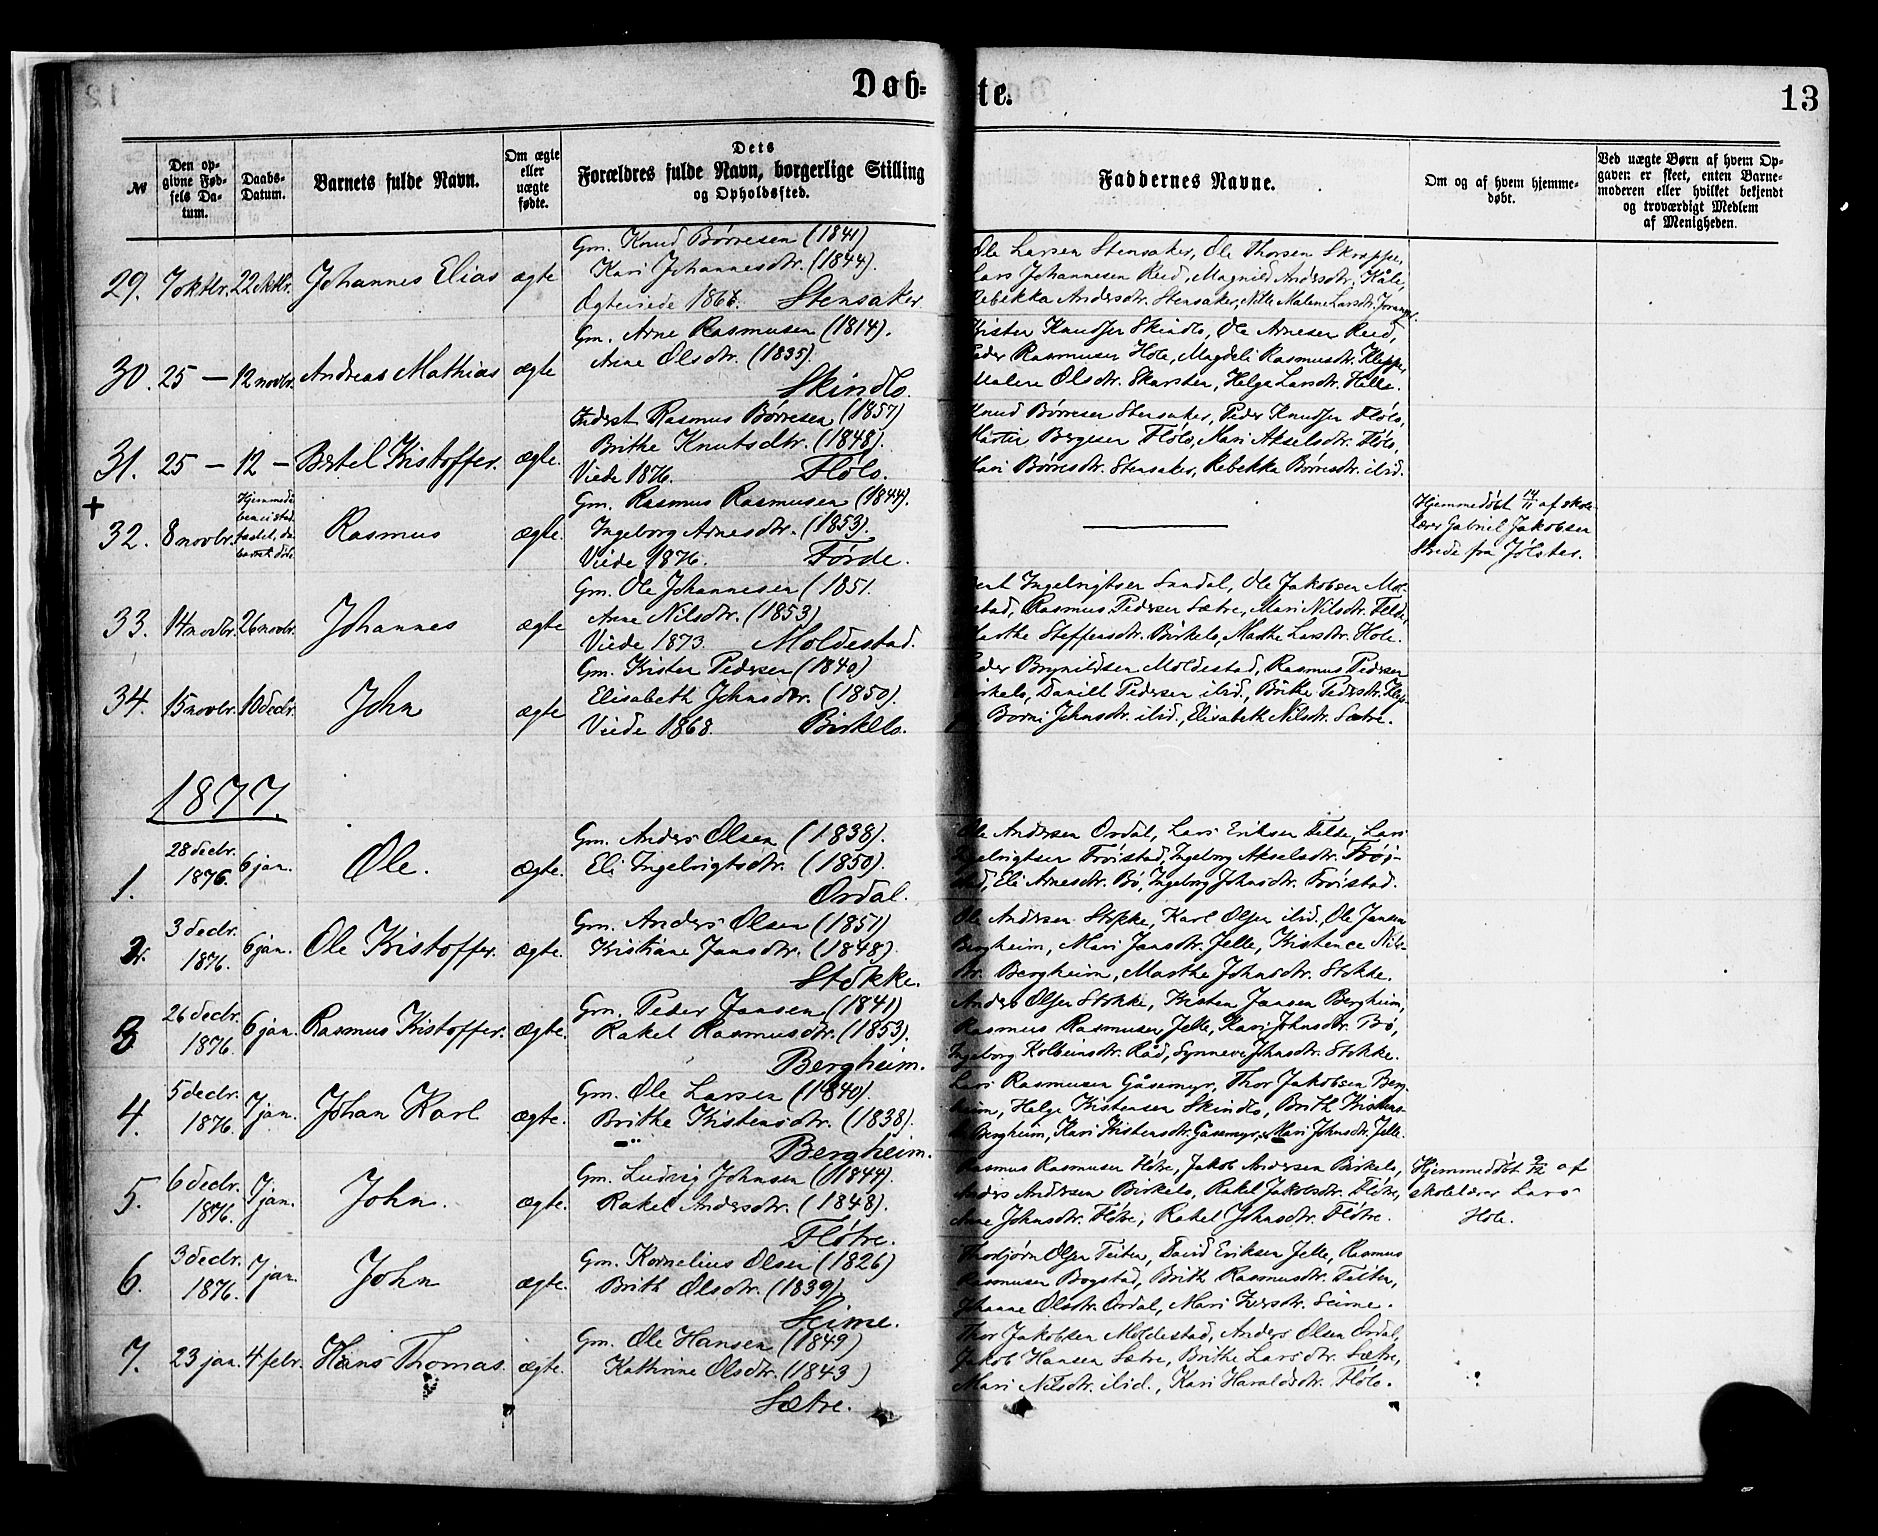 Døb=
te.
13
№
Den op-
givne Fød-
sels Da-
tum.
Daabs-
Datum.
Barnets fulde Navn.
Om ægte
eller
uægte
fødte.
Dets
Forældres fulde Navn, borgerlige Stilling
og Opholdssted.
Faddernes Navne.
Om og af hvem hjemme-
døbt.
Ved uægte Børn af hvem Op-
gaven er skeet, enten Barne-
moderen eller hvilket bekjendt
og troværdigt Medlem
af Menigheden.
29. 7 oktbr. 22 oktbr. Johannes Elias ægte
Gm. Knud Børresen (1841)
Kari Johannesdtr. (1844).
Ægteviede 1868. Stensaker.
Ole Larsen Stensaker, Ole Thorsen Skrøppe,
Lars Johannesen Reed, Magnild Andersdtr. Kåle,
Rebekka Andersdtr. Stensaker, Nille Malene Larsdtr.
30. 25 — 12 novbr. Andreas Mathias ægte
Gm. Arne Rasmusen (1814).
Anne Olsdtr. (1835).
Skindlo.
Kristen Knudsen Skindlo, Ole Arnesen Reed,
Peder Rasmusen Hole, Magdeli Rasmusdtr. Kleppe,
Malene Olsdtr. Skarsten, Helga Larsdtr. Hille.
31. 25 — 12 — Bertel Kristoffer. ægte.
Inderst Rasmus Børresen (1857)
Brithe Knutsdtr. (1848).
Viede 1876. Flølo.
Knud Børresen Stensaker, Peder Knudsen Flølo,
Martin Bergesen Flølo, Mari Akselsdtr. Flølo,
Mari Børresdtr. Stensaker, Rebekka Børresdtr. ibid.
+
32. 8 novbr. Rasmus ægte.
Hjemmedø-
Gm. Rasmus Rasmusen (1844).
Ingeborg Arnesdtr. (1853).
Viede 1876. Førde.
Hjemmedøbt af skole-
lærer Gabriel Jakobsen
Strede fra Jølster.
33. 14 novbr. 26 novbr. Johannes ægte
Gm. Ole Johannesen (1851.
Anne Nilsdtr. (1853)
Viede 1873. Moldestad.
Bent Ingebrigtsen Sandal, Ole Jakobsen Mol-
stad, Rasmus Pedersen Sætre, Mari Nilsdtr. Felde,
Marthe Steffensdtr. Birkelo, Marthe Larsdtr. Hole.
34. 15 novbr. 10 decbr. John ægte
Gm. Kristen Pedersen (1840)
Elisabeth Johnsdtr. (1850).
Viede 1868. Birkelo.
Peder Brynildsen Moldestad, Rasmus Pedersen
Birkelo, Daniel Pedersen ibid., Brithe Pedersdtr. Klep-
pe, Borni Johnsdtr. ibid., Elisabeth Nilsdtr. Sætre.
1877.
1. 28 decbr. 1876. 6 jan. Ole. ægte.
Gm. Anders Olsen (1838).
Eli Ingebrigtsdtr. (1850).
Ordal.
Ole Andersen Ordal, Lars Eriksen Felde, Lars
Ingebrigtsen Frøistad, Ingeborg Akselsdtr. Frøi-
stad, Eli Arnesdtr. Bø, Ingeborg Johnsdtr. Frøistad.
2. 3 decbr. 1876. 6 jan. Ole Kristoffer. ægte.
Gm. Anders Olsen (1851)
Kristiane Jansdtr. (1848).
Stokke.
Ole Andersen Stokke, Karl Olsen ibid., Ole Jansen
Bergheim, Mari Jansdtr. Jelle, Kristence Nils-
dtr. Bergheim, Marthe Johnsdtr. Stokke.
3 26 decbr. 1876. 6 jan. Rasmus Kristoffer. ægte.
Gm. Peder Jansen (1841)
Rakel Rasmusdtr. (1853).
Bergheim.
Anders Olsen Stokke, Kristen Jansen Bergheim,
Rasmus Rasmusen Jelle, Kari Johnsdtr. Bø,
Ingeborg Kolbeinsdtr. Råd, Synneve Johnsdtr. Stokke.
4. 5 decbr. 1876. 7 jan. Johan Karl ægte.
Gm. Ole Larsen (1840).
Brithe Kristensdtr. (1838).
—"— Bergheim.
Lars Rasmusen Gåsemyr, Thor Jakobsen Berg-
heim, Helge Kristensen Skindlo, Brith Kristens-
dtr. Bergheim, Kari Kristensdtr. Gåsemyr, Mari Johnsdtr. Jelle.
5. 6 decbr. 1876. 7 jan. John. ægte.
Gm. Ludvig Johnsen (1844).
Rakel Andersdtr. (1848).
Fløtre.
Rasmus Rasmusen Fløtre, Jakob Andersen Birkelo,
Anders Andersen Birkelo, Rakel Jakobsdtr. Fløtre,
Anne Johnsdtr. Fløtre, Rakel Johnsdtr. Fløtre.
Hjemmedøbt 9/12 af
skolelærer Lars
Hole.
6. 3 decbr. 1876. 7 jan. John ægte.
Gm. Kornelius Olsen (1826)
Brith Olsdtr. (1839)
Seime.
Thorbjørn Olsen Feiten, David Eriksen Jelle, Rasmus
Rasmusen Bogstad, Brith Rasmusdtr. Feiten,
Johanne Olsdtr. Ordal, Mari Iversdtr. Seime.
7. 23 jan. 4 febr. Hans Thomas. ægte.
Gm. Ole Hansen (1849)
Kathrine Olsdtr. (1843)
Sætre.
Thor Jakobsen Moldestad, Anders Olsen Ordal,
Jakob Hansen Sætre, Brithe Larsdtr. Sætre,
Mari Nilsdtr. ibid., Kari Haraldsdtr. Flølo.